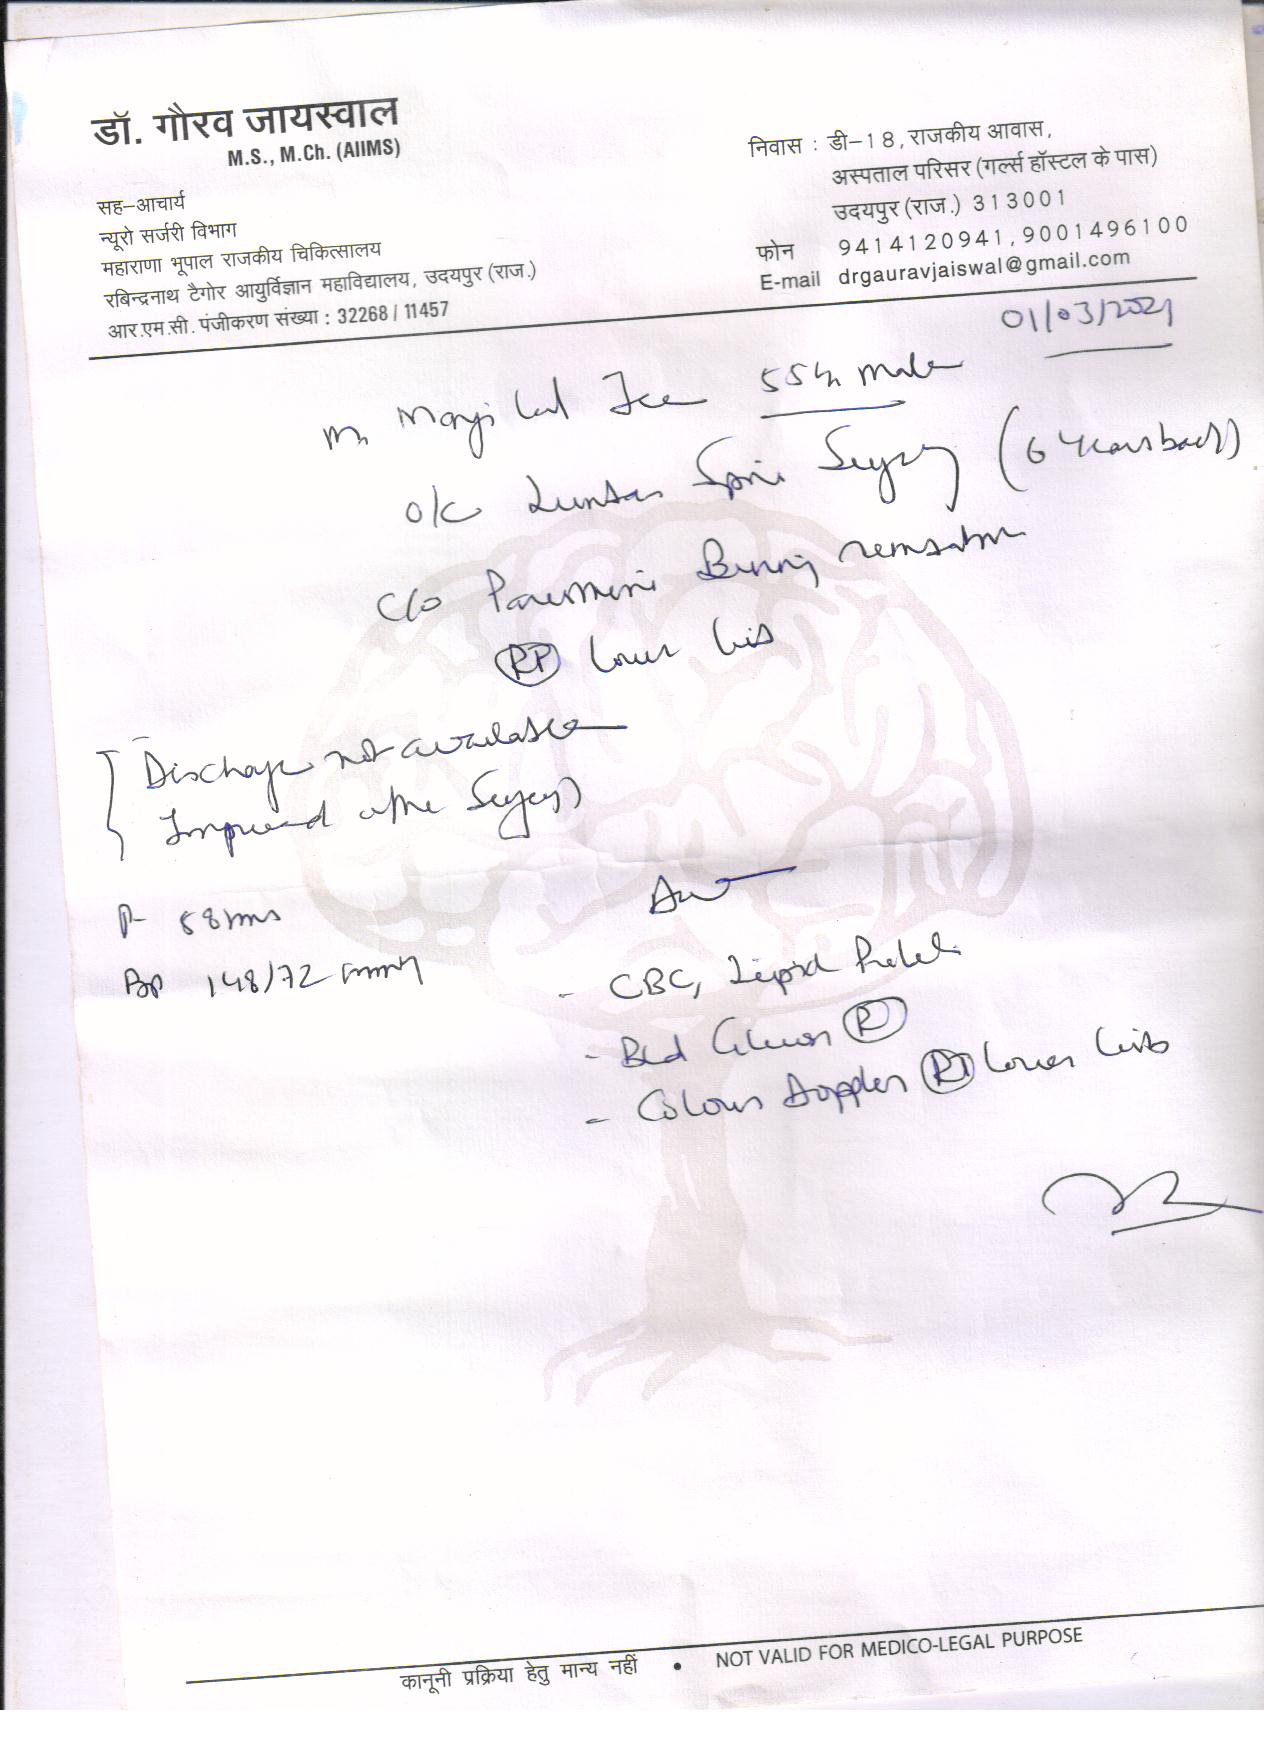 डॉ. गौरव जायस्वाल
M.S., M.Ch. (AIIMS)
सह-आचार्य
न्यूरो सर्जरी विभाग
महाराणा भूपाल राजकीय चिकित्सालय
रबिन्द्रनाथ टैगोर आयुर्विज्ञान महाविद्यालय, उदयपुर (राज.)
आर.एम.सी. पंजीकरण संख्या : 32268 / 11457
निवास : डी-18, राजकीय आवास,
अस्पताल परिसर (गर्ल्स हॉस्टल के पास)
उदयपुर (राज.) 313001
फोन 9414120941, 9001496100
E-mail drgauravjaiswal@gmail.com
01/03/2021
Lal 55 male
Lumbar Spine Surgery (6 Years back)
c/o Burning
lower
Discharge not available
Improved after Surgery
P-
BP 148/72 mmHg
Adv
- CBC, Lipid Profile
- Bld Glucose (R)
- Colour Doppler lower
कानूनी प्रक्रिया हेतु मान्य नहीं • NOT VALID FOR MEDICO-LEGAL PURPOSE